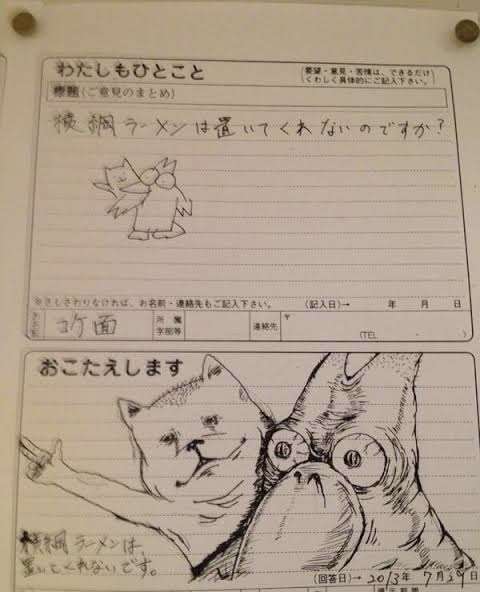 わたしもひとこと
要望・意見・苦情は、できるだけ
くわしく具体的にご記入下さい。
標題(ご意見のまとめ)
横綱ラーメンは置いてくれないのですか?
※さしさわりなければ、お名前・連絡先もご記入下さい。 (記入日)→ 年 月 日
コケ面
所属
学部等
連絡先
〒
(TEL )
おこたえします
横綱ラーメンは、
置いてくれないです。
(回答日)→ 2013年 7月29日